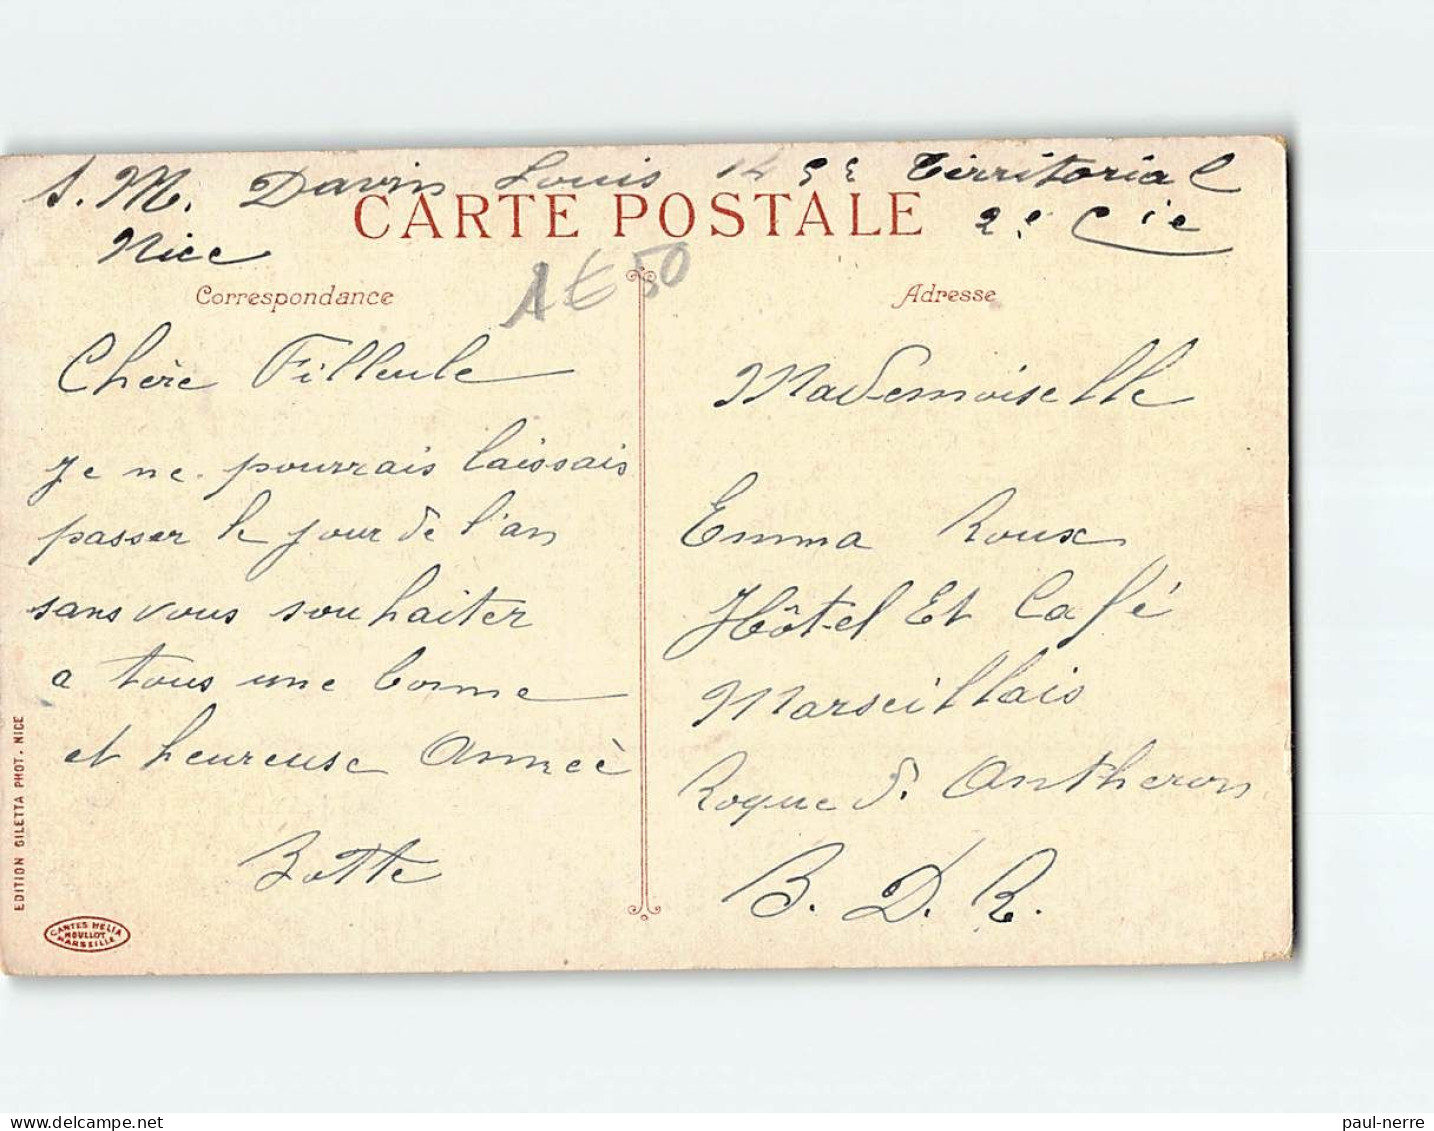 S. M. Davin Louis 145e Territorial
2e Cie
Nice
CARTE POSTALE
1€50
Correspondance
Adresse
Chère Filleule
je ne pourrais laissais
passer le jour de l'an
sans vous souhaiter
a tous une bonne
et heureuse Anneè
Mademoiselle
Emma Roux
Hôtel Et Café
Marseillais
Roque d. Antheron
B. D. R.
EDITION GILETTA PHOT. NICE
CARTES HELIA
MOULLOT
MARSEILLE
paul-nerre